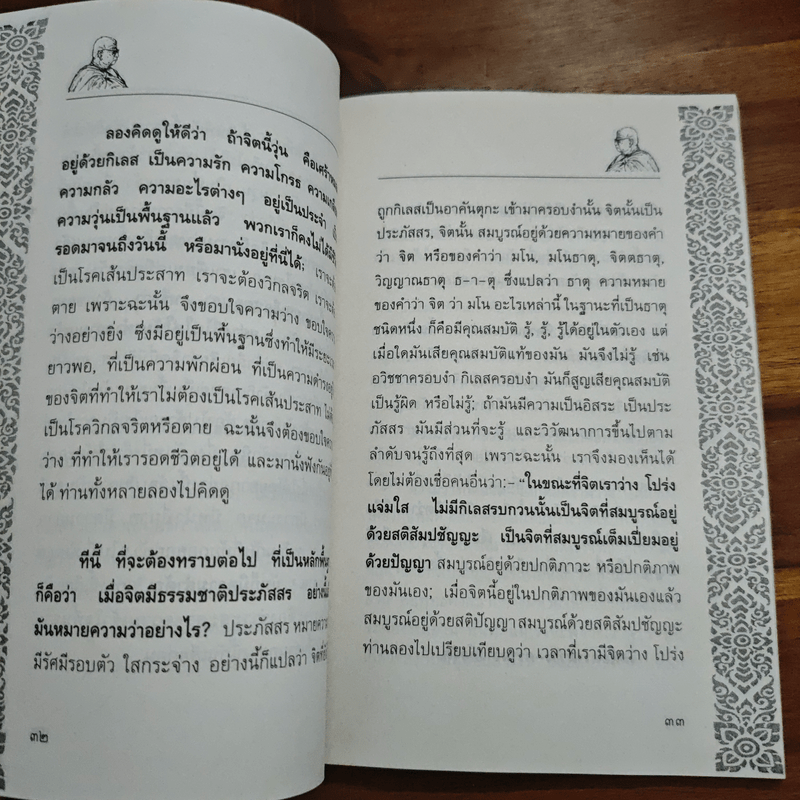 ลองคิดดูให้ดีว่า ถ้าจิตนี้วุ่น คือเศร้าหมอง
อยู่ด้วยกิเลส เป็นความรัก ความโกรธ ความเกลียด
ความกลัว ความอะไรต่างๆ อยู่เป็นประจำ
ความวุ่นเป็นพื้นฐานแล้ว พวกเราก็คงไม่ได้
รอดมาจนถึงวันนี้ หรือมานั่งอยู่ที่นี่ได้; เราจะ
เป็นโรคเส้นประสาท เราจะต้องวิกลจริต เราจะ
ตาย เพราะฉะนั้น จึงขอบใจความว่าง ขอบใจ
ว่างอย่างยิ่ง ซึ่งมีอยู่เป็นพื้นฐานซึ่งทำให้มีระยะ
ยาวพอ, ที่เป็นความพักผ่อน ที่เป็นความดำรงอยู่
ของจิตที่ทำให้เราไม่ต้องเป็นโรคเส้นประสาท ไม่
เป็นโรควิกลจริตหรือตาย ฉะนั้นจึงต้องขอบใจ
ว่าง ที่ทำให้เรารอดชีวิตอยู่ได้ และมานั่งฟังกันอยู่
ได้ ท่านทั้งหลายลองไปคิดดู
ทีนี้ ที่จะต้องทราบต่อไป ที่เป็นหลักพื้น
ก็คือว่า เมื่อจิตมีธรรมชาติประภัสสร อย่างนี้
มันหมายความว่าอย่างไร? ประภัสสร หมายความ
มีรัศมีรอบตัว ใสกระจ่าง อย่างนี้ก็แปลว่า
๓๒
ถูกกิเลสเป็นอาคันตุกะ เข้ามาครอบงำนั้น จิตนั้นเป็น
ประภัสสร, จิตนั้น สมบูรณ์อยู่ด้วยความหมายของคำ
ว่า จิต หรือของคำว่า มโน, มโนธาตุ, จิตตธาตุ,
วิญญาณธาตุ ธ–า–ตุ ซึ่งแปลว่า ธาตุ ความหมาย
ของคำว่า จิต ว่า มโน อะไรเหล่านี้ ในฐานะที่เป็นธาตุ
ชนิดหนึ่ง ก็คือมีคุณสมบัติ รู้, รู้, รู้ได้อยู่ในตัวเอง แต่
เมื่อใดมันเสียคุณสมบัติแท้ของมัน มันจึงไม่รู้ เช่น
อวิชชาครอบงำ กิเลสครอบงำ มันก็สูญเสียคุณสมบัติ
เป็นรู้ผิด หรือไม่รู้; ถ้ามันมีความเป็นอิสระ เป็นประ
ภัสสร มันมีส่วนที่จะรู้ และวิวัฒนาการขึ้นไปตาม
ลำดับจนรู้ถึงที่สุด เพราะฉะนั้น เราจึงมองเห็นได้
โดยไม่ต้องเชื่อคนอื่นว่า:– “ในขณะที่จิตเราว่าง โปร่ง
แจ่มใส ไม่มีกิเลสรบกวนนั้นเป็นจิตที่สมบูรณ์อยู่
ด้วยสติสัมปชัญญะ เป็นจิตที่สมบูรณ์เต็มเปี่ยมอยู่
ด้วยปัญญา สมบูรณ์อยู่ด้วยปกติภาวะ หรือปกติภาพ
ของมันเอง; เมื่อจิตนี้อยู่ในปกติภาพของมันเองแล้ว
สมบูรณ์อยู่ด้วยสติปัญญา สมบูรณ์ด้วยสติสัมปชัญญะ
ท่านลองไปเปรียบเทียบดูว่า เวลาที่เรามีจิตว่าง โปร่ง
๓๓